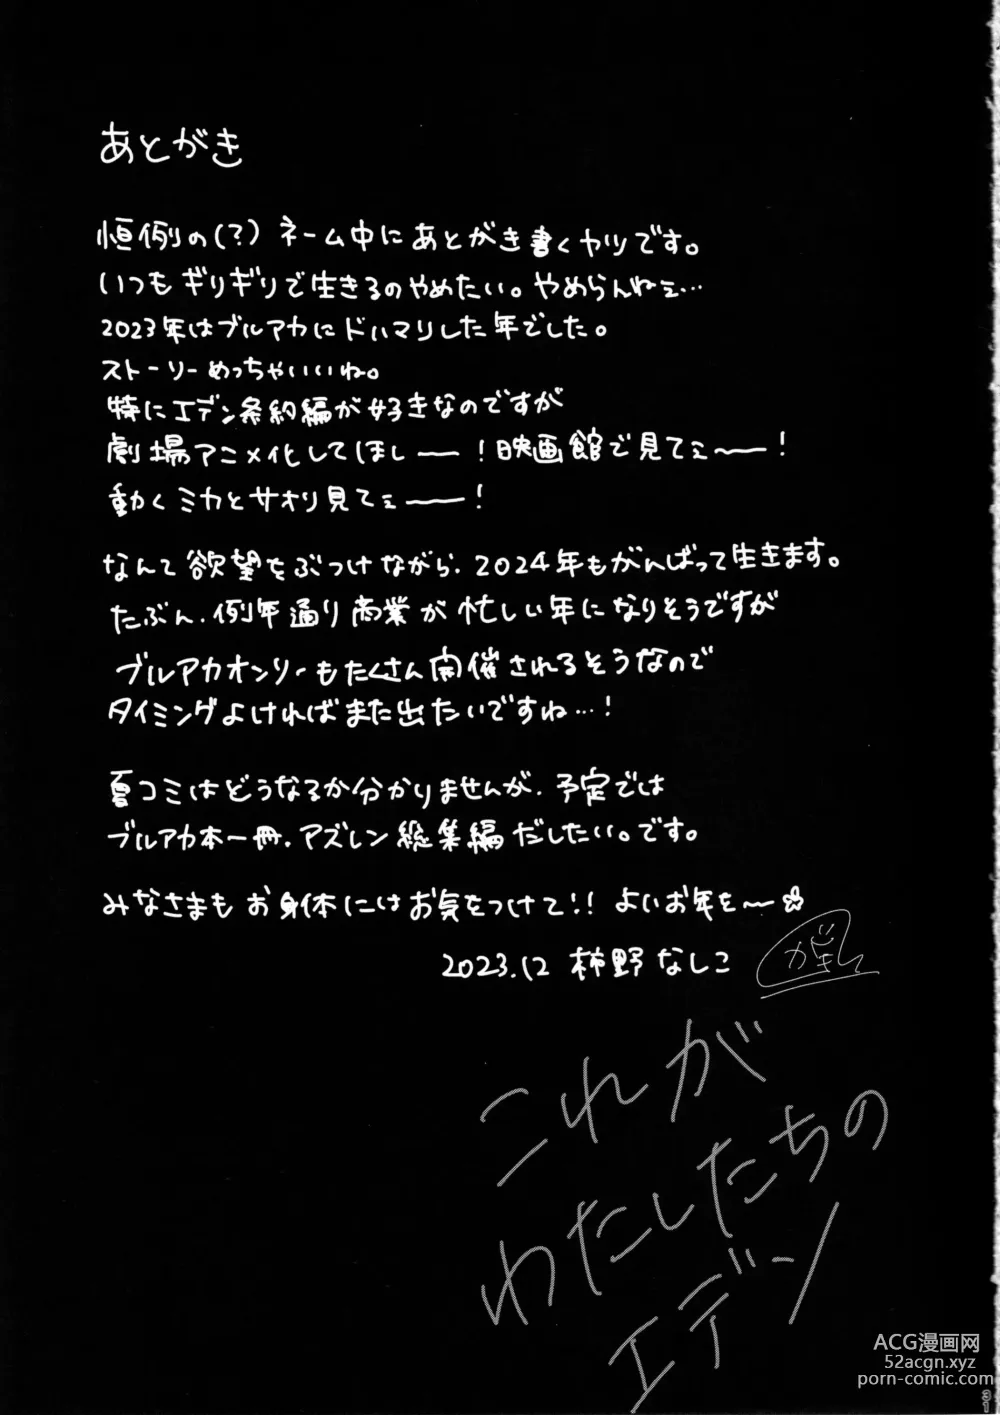 あとがき
恒例の(?)ネーム中にあとがき書くヤツです。
いつもギリギリで生きるのやめたい。やめらんねェ…
2023年はブルアカにドハマりした年でした。
ストーリーめっちゃいいね。
特にエデン条約編が好きなのですが
劇場アニメ化してほしー!映画館で見てェ〜ー!
動くミカとサオリ見てェーー!
なんて欲望をぶつけながら、2024年もがんばって生きます。
たぶん、例年通り商業が忙しい年になりそうですが
ブルアカオンリーもたくさん開催されるそうなので
タイミングよければまた出たいですね…!
夏コミはどうなるか分かりませんが、予定では
ブルアカ本一冊、アズレン総集編だしたい。です。
みなさまもお身体にはお気をつけて!! よいお年を〜☆
2023.12 柿野なしこ
これが
わたしたちの
エデン
ACG漫画网
52acgn.xyz
porn-comic.com
31